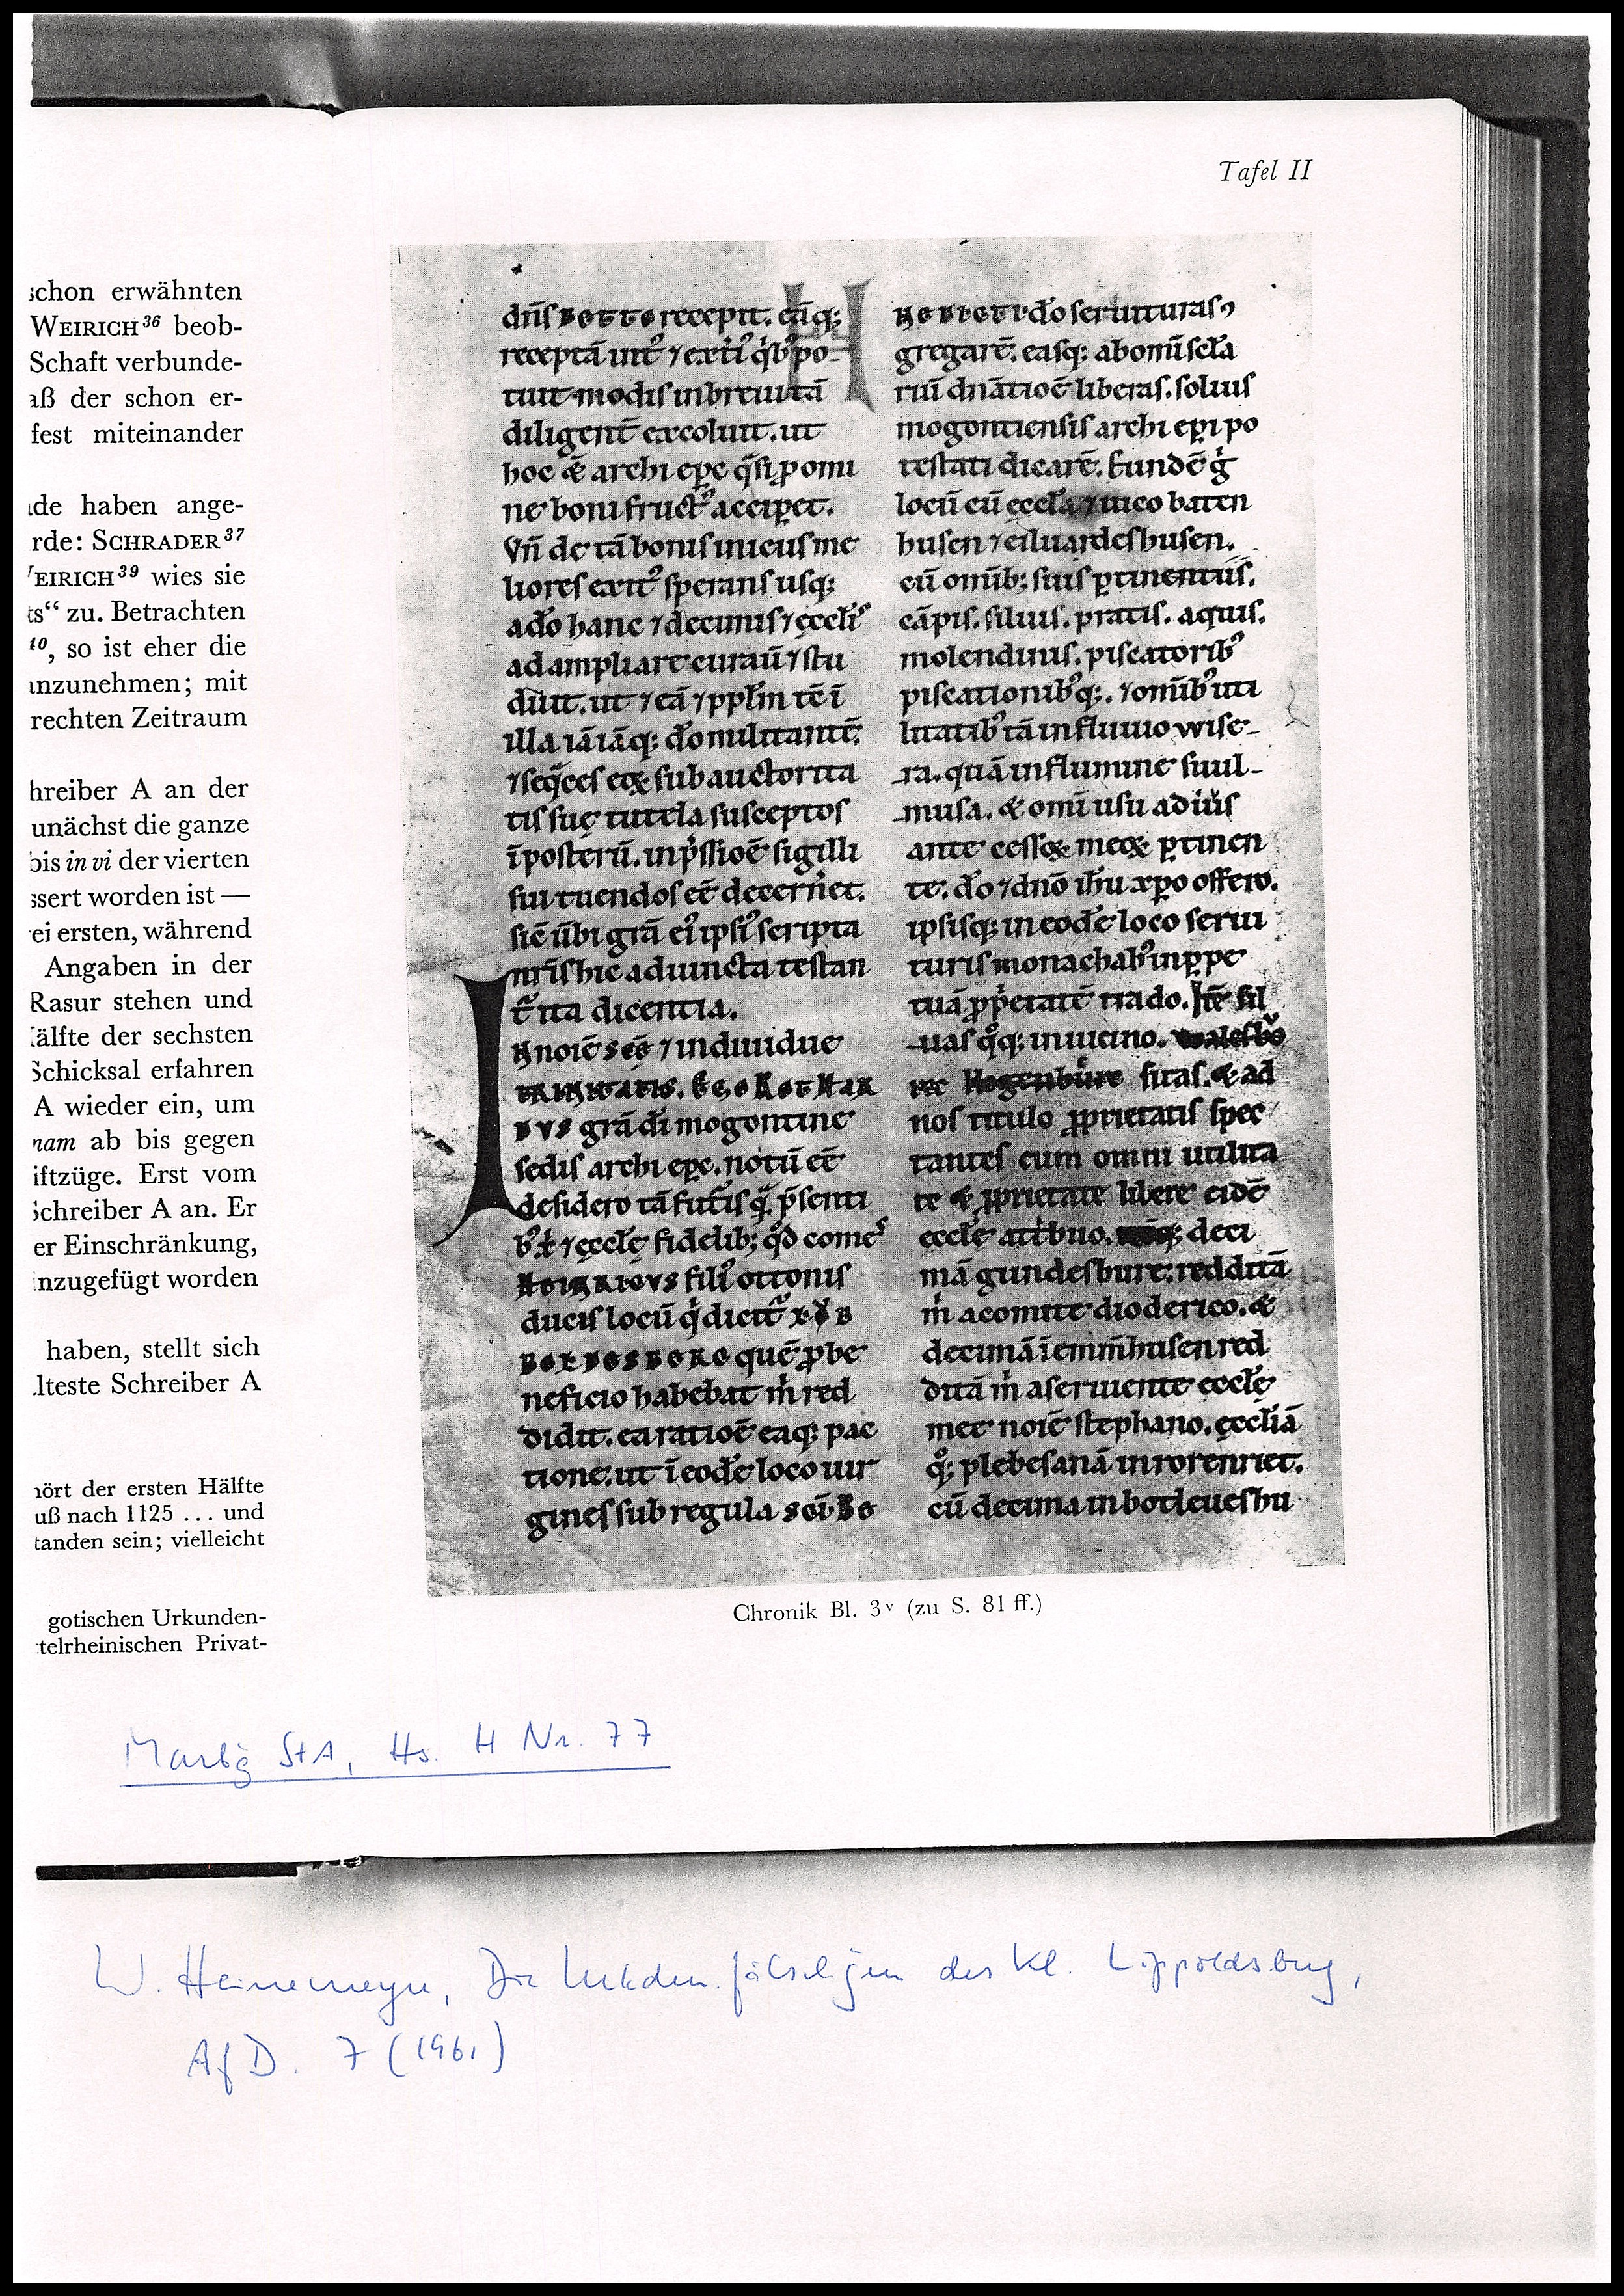 Tafel II
schon erwähnten
WEIRICH³⁶ beob-
Schaft verbunde-
aß der schon er-
fest miteinander
de haben ange-
rde: SCHRADER³⁷
EIRICH³⁹ wies sie
ts“ zu. Betrachten
⁴⁰, so ist eher die
nzunehmen; mit
rechten Zeitraum
hreiber A an der
unächst die ganze
bis in vi der vierten
ssert worden ist —
ei ersten, während
Angaben in der
Rasur stehen und
älfte der sechsten
Schicksal erfahren
A wieder ein, um
nam ab bis gegen
iftzüge. Erst vom
Schreiber A an. Er
er Einschränkung,
nzugefügt worden
haben, stellt sich
lteste Schreiber A
hört der ersten Hälfte
uß nach 1125 ... und
tanden sein; vielleicht
gotischen Urkunden-
telrheinischen Privat-
dñs recepit. eāq;
receptā int⁹ ⁊ ext⁹ qͥb⁹ po-
tuit modis inbreui tā
diligent̄ excoluit. ut
hoc & archi ep̄c q̄si pomu
ne boni fruct⁹ acciꝑet.
Vn̄ de tā bonis iniciis me
liores exit⁹ sperans usq;
ado hanc ⁊ decimis ⁊ ęccl̄is
ad ampliare curauit ⁊ stu
duit. ut ⁊ eā ⁊ ppl̄m
illa iā iāq; dō militantē.
⁊ seq̄ces eoꝝ sub auctorita
tis suę tutela susceptos
ī posterū. inp̄ssioē sigilli
sui tuendos eē decernet.
sic ūbi grā ei⁹ ipsi⁹ scripta
nr̄is hic adiuncta testan
t̄ ita dicentia.
In noiē sc̄ę ⁊ indiuidue
trinitatis. Ego
grā dī mogontine
sedis archi ep̄c. notū eē
desidero tā futuris q̄ p̄senti
b⁹ ⁊ ęccl̄ę fidelib; qd̄ comes
fili⁹ ottonis
ducis locū q̄ dicit̄
quē ꝓ be
neficio habebat m̄ red
didit. ea ratioē eaq; pac
tione. ut ī eodē loco uir
gines sub regula sc̄i Be
nedicti dō seruituras ↄ
gregarē. easq; ab omī sc̄la
riū dn̄atioē liberas. solius
mogontiensis archi epi po
testati dicarē. Eundē g͛
locū cū ęccl̄a ⁊ uico baten
husen ⁊ eiluardeshusen.
cū omib; suis ꝑtinentiis.
cāpis. siluis. pratis. aquis.
molendinis. piscatorib⁹
piscationib⁹q;. ⁊ omib⁹ uti
litatib⁹ tā in fluuio wise-
ra. quā in flumine suil-
musa. & omi usu ad ius
ante cessoꝝ meoꝝ ꝑtinen
te. dō ⁊ dn̄o ihu xpo offero.
ipsisq; in eodē loco serui
turis monachab⁹ in ꝑpe
tuā ꝓprietatē trado. Itē sil
uas qͦq; in uicino.
nec Hegenbure sitas. & ad
nos titulo ꝓprietatis spec
tantes cum omni utilita
te & ꝓprietate libere eidē
eccl̄e atͥbuo. deci
mā gundesbure. redditā
m̄ a comite dioderico. &
decimā ī emm̄husen red
ditā m̄ a seruiente eccl̄ę
mee noiē stephano. ęccl̄iā
qͦ; plebesanā in rorenriet.
cū decima in botleueshu
Chronik Bl. 3ᵛ (zu S. 81 ff.)
Marbg StA, Hs. H Nr. 77
W. Heinemeyer, Die Urkdenfälschgen des Kl. Lippoldsberg,
AfD. 7 (1961)